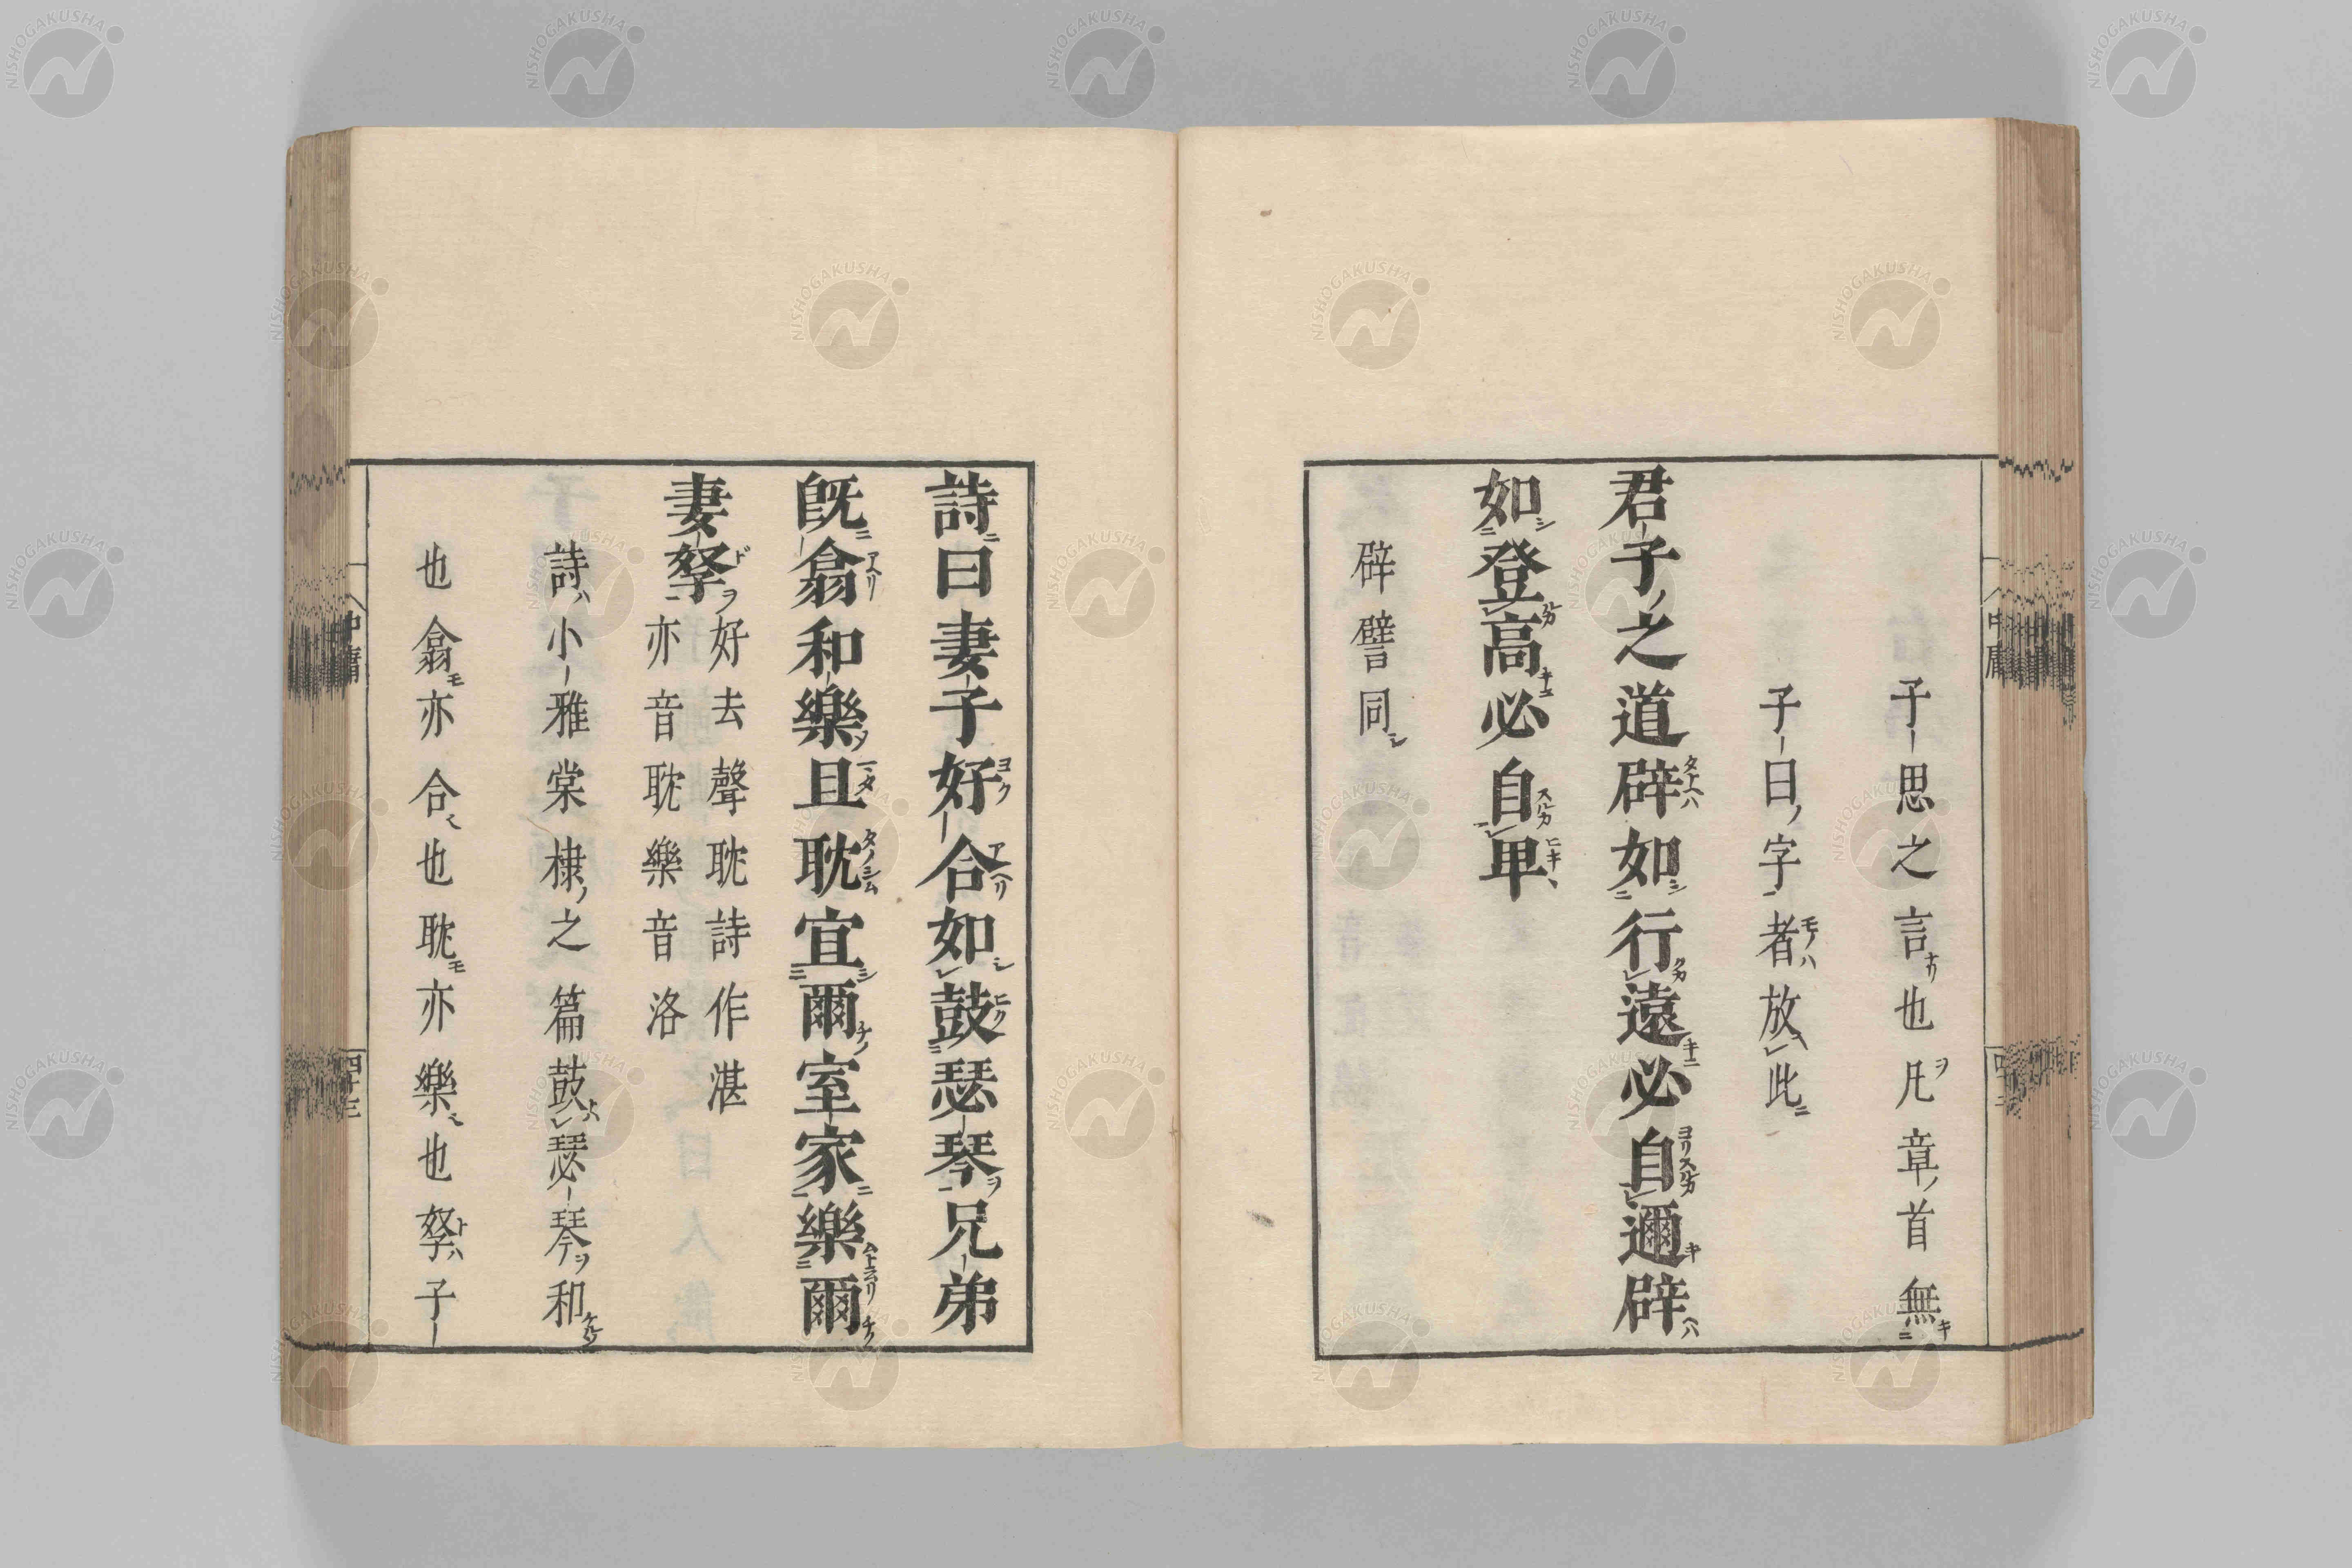 子思之言也凡章首無
子曰字者放此
君子之道辟如行遠必自邇辟
如登高必自卑
辟譬同
詩曰妻子好合如鼓瑟琴兄弟
既翕和樂且耽宜爾室家樂爾
妻孥
好去聲耽詩作湛
亦音耽樂音洛
詩小雅棠棣之篇鼓瑟琴和
也翕亦合也耽亦樂也孥子
中庸
四十三
NISHOGAKUSHA